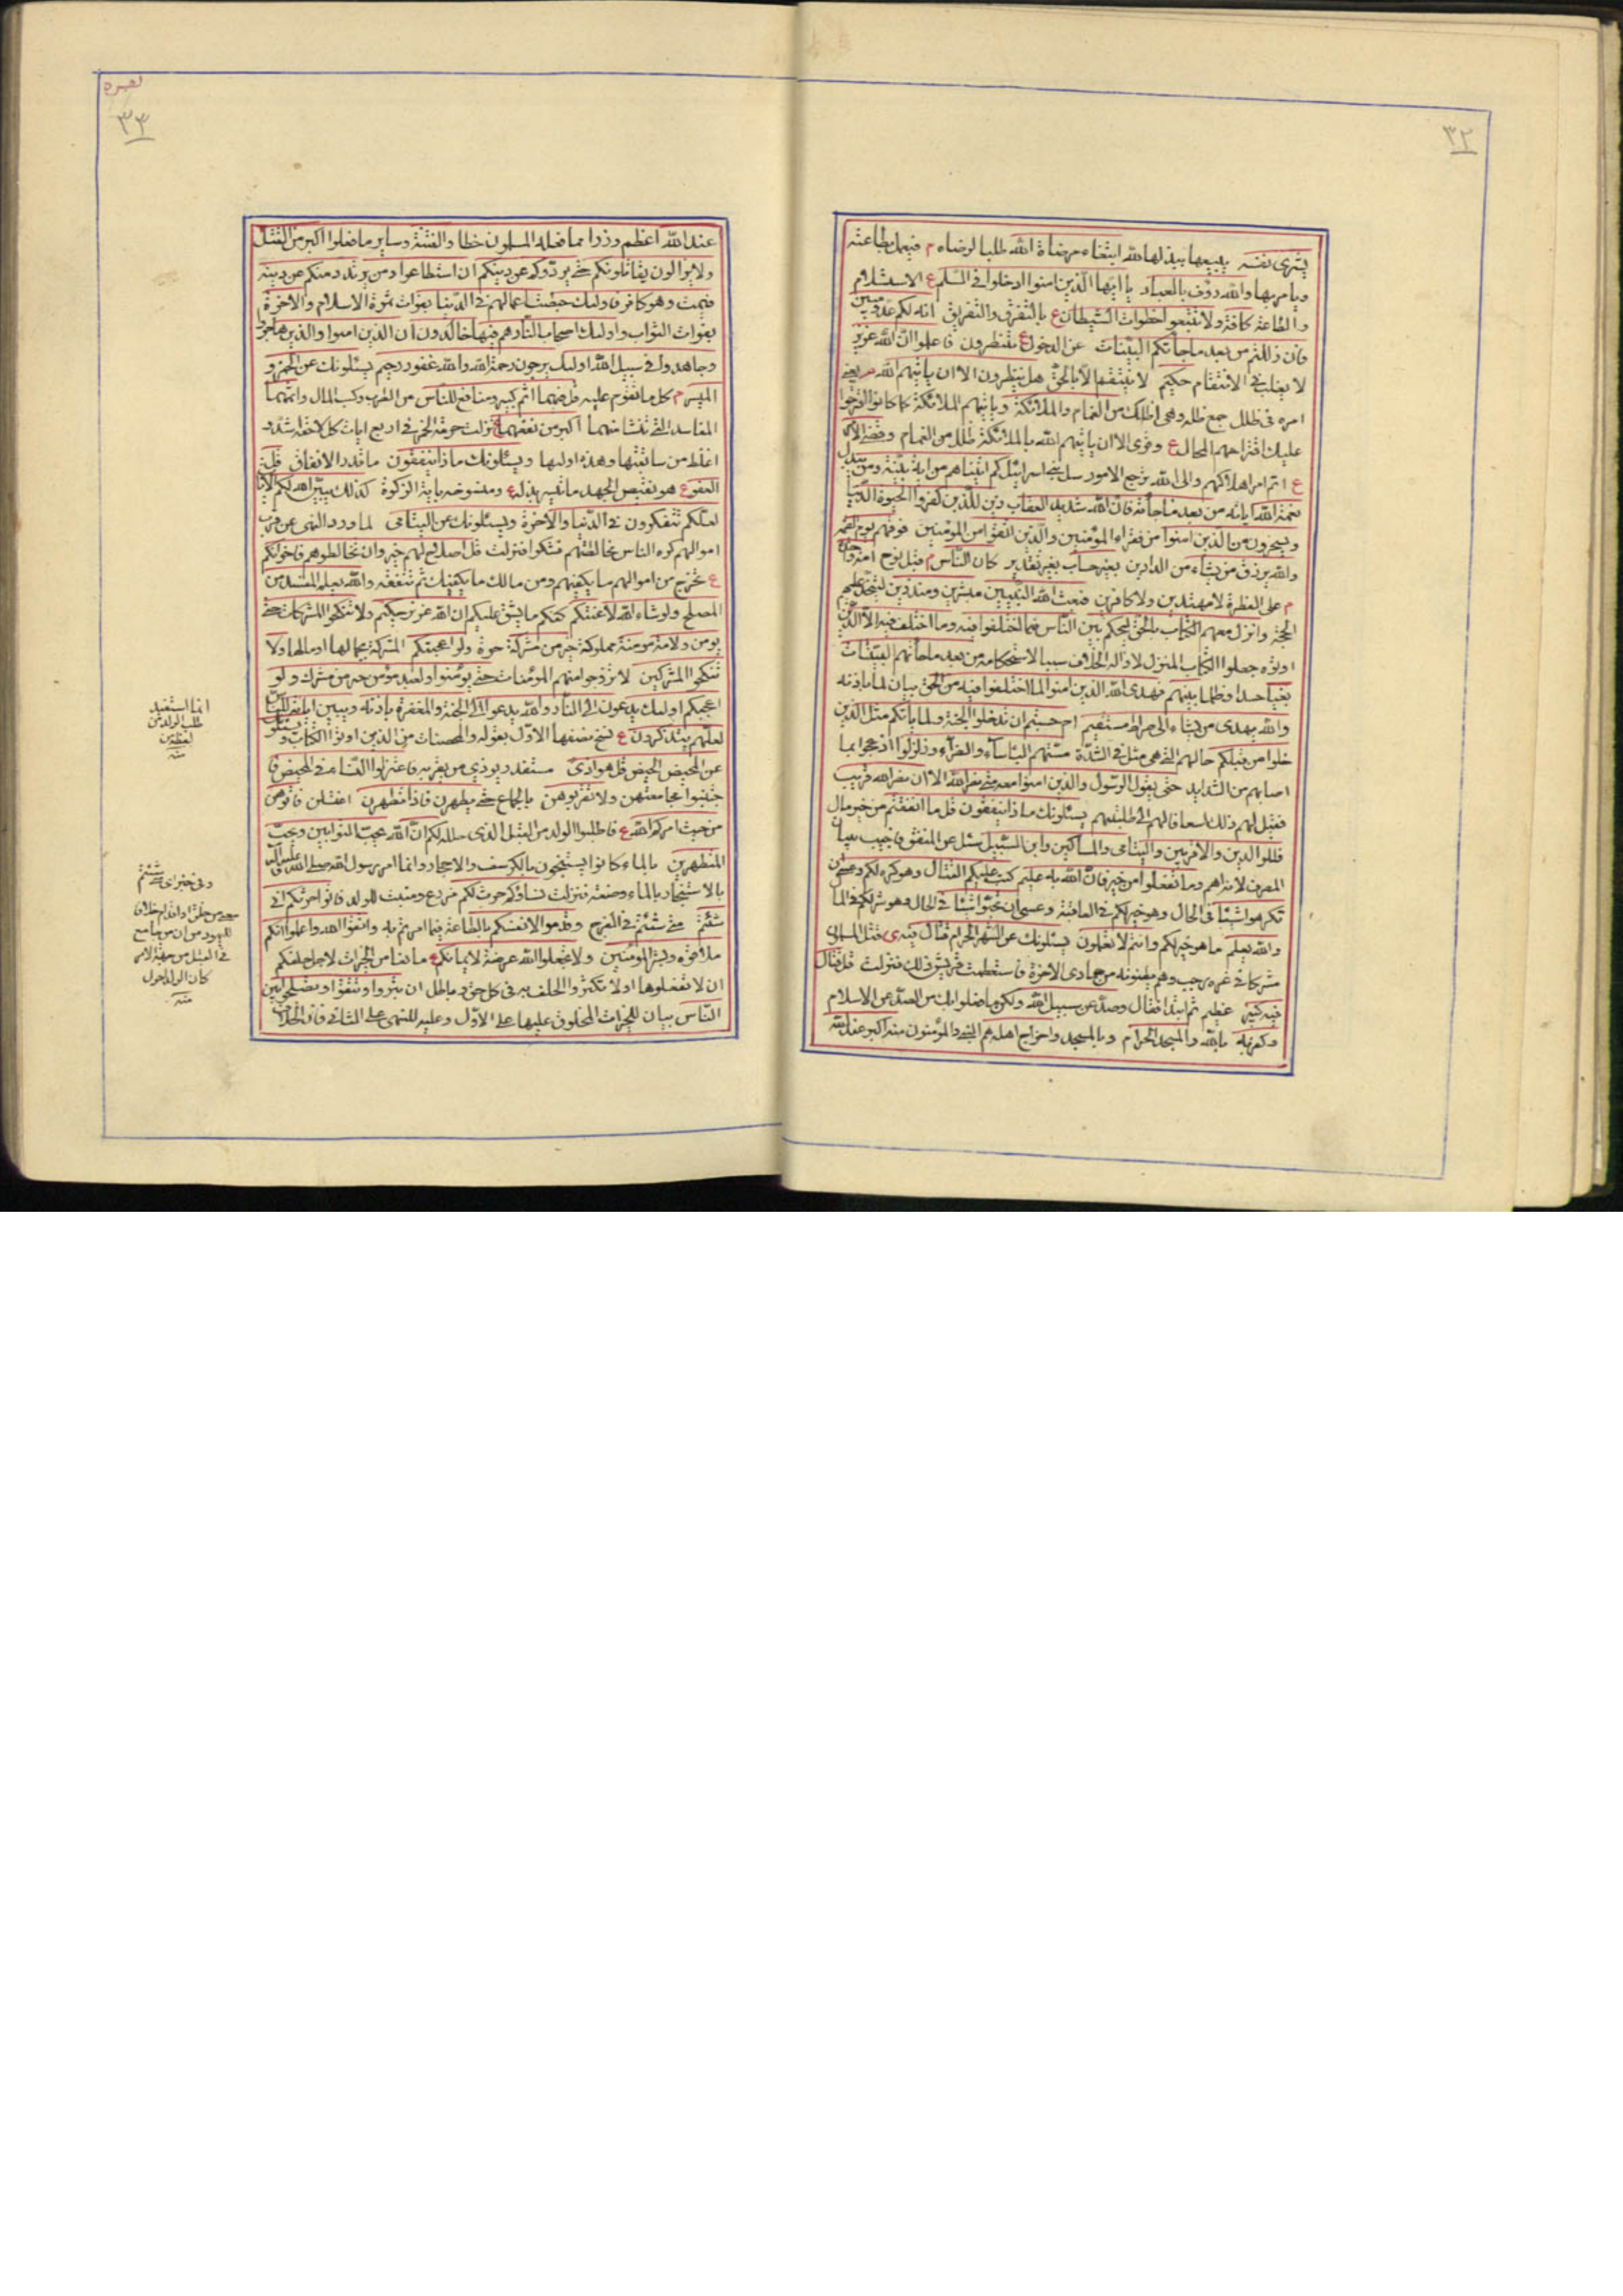 ٣٢
يشرى نفسه يبيعها ببذلها لله ابتغاء مرضاة الله طلبا لرضاه م فيعمل بطاعته
ويامر بها والله رؤف بالعباد يا ايها الذين امنوا ادخلوا في السلم ع الاستسلام
والطاعة كافة ولا تتبعوا خطوات الشيطان ع بالتفرق والتفريق انه لكم عدو مبين
فان زللتم من بعد ما جاءتكم البينات عن الدخول فاعلموا ان الله عزيز
لا يغلب في الانتقام حكيم لا ينتقم الا بالحق هل ينظرون الا ان ياتيهم الله م يعني
امره في ظلل جمع ظلة وهي ما اظلك من الغمام والملائكة وياتيهم الملائكة كما كانوا اقترحوا
عليك اقتراحهم المحال ع وقرى الا ان ياتيهم الله بالملائكة في ظلل من الغمام وقضي الامر
ع اتم امر اهلاكهم والى الله ترجع الامور سل بني اسرائيل كم اتيناهم من اية بينة ومن يبدل
نعمة الله اياته من بعد ما جاءته فان الله شديد العقاب زين للذين كفروا الحيوة الدنيا
ويسخرون من الذين امنوا من فقراء المؤمنين والذين اتقوا من المؤمنين فوقهم يوم القيمة
والله يرزق من يشاء من الدارين بغير حساب بغير تقدير كان الناس م قبل نوح امة واحدة
م على الفطرة لا مهتدين ولا كافرين فبعث الله النبيين مبشرين ومنذرين ليتخذ عليهم
الحجة وانزل معهم الكتاب بالحق ليحكم بين الناس فيما اختلفوا فيه وما اختلف فيه الا الذين
اوتوه جعلوا الكتاب المنزل لازالة الخلاف سببا لاستحكامه من بعد ما جاءتهم البينات
بغيا حسدا وظلما بينهم فهدى الله الذين امنوا لما اختلفوا فيه من الحق بيان لما باذنه
والله يهدي من يشاء الى صراط مستقيم ام حسبتم ان تدخلوا الجنة ولما ياتكم مثل الذين
خلوا من قبلكم حالهم التي هي مثل في الشدة مستهم الباساء والضراء وزلزلوا ازعجوا بما
اصابهم من الشدايد حتى يقول الرسول والذين امنوا معه متى نصر الله الا ان نصر الله قريب
فقيل لهم ذلك اسعافا لهم الى طلبتهم يسئلونك ماذا ينفقون قل ما انفقتم من خير مال
فللوالدين والاقربين واليتامى والمساكين وابن السبيل سئل عن المنفق فاجيب ببيان
المصرف لانه اهم وما تفعلوا من خير فان الله به عليم كتب عليكم القتال وهو كره لكم وعسى ان
تكرهوا شيئا في الحال وهو خير لكم في العاقبة وعسى ان تحبوا شيئا في الحال وهو شر لكم في المال
والله يعلم ما هو خير لكم وانتم لا تعلمون يسئلونك عن الشهر الحرام قتال فيه ى قتل المسلمون
مشركا في غرة رجب وهم يظنونه من جمادى الاخرة فاستعظمت قريش ذلك فنزلت قل قتال
فيه كبير عظيم ثم ابتدا فقال وصد عن سبيل الله ولكن ما فعلوا بك من الصد عن الاسلام
وكفر به بالله والمسجد الحرام وبالمسجد واخراج اهله هم النبي والمؤمنون منه اكبر عند الله
بصره
٣٣
عند الله اعظم وزرا مما فعله المسلمون خطا والفتنة وساير ما فعلوا اكبر من القتل
ولا يزالون يقاتلونكم حتى يردوكم عن دينكم ان استطاعوا ومن يرتدد منكم عن دينه
فيمت وهو كافر فاولئك حبطت اعمالهم في الدنيا بفوات ثمرة الاسلام والاخرة
بفوات الثواب واولئك اصحاب النار هم فيها خالدون ان الذين امنوا والذين هاجروا
وجاهدوا في سبيل الله اولئك يرجون رحمة الله والله غفور رحيم يسئلونك عن الخمر و
الميسر م كل ما تقوم عليه قل فيهما اثم كبير ومنافع للناس من الطرب وكسب المال واثمهما
المفاسد التي تنشا منهما اكبر من نفعهما ع نزلت حرمة الخمر في اربع ايات كل لاحقة اشد و
اغلظ من سابقتها وهذه اوليها ويسئلونك ماذا ينفقون ما قدر الانفاق قل
العفو ع هو نقيض الجهد ما تيسر بذله ع ومنسوخة باية الزكوة كذلك يبين الله لكم الايات
لعلكم تتفكرون في الدنيا والاخرة ويسئلونك عن اليتامى لما ورد النهى عن قرب
اموالهم كره الناس مخالطتهم فشكوا فنزلت قل اصلاح لهم خير وان تخالطوهم فاخوانكم
ع تخرج من اموالهم ما يكفيهم ومن مالك ما يكفيك ثم تنفقه والله يعلم المفسد من
المصلح ولو شاء الله لاعنتكم كلفكم ما يشق عليكم ان الله عزيز حكيم ولا تنكحوا المشركات حتى
يؤمن ولامة مومنة مملوكة خير من مشركة حرة ولو اعجبتكم المشركة بجمالها او مالها ولا
تنكحوا المشركين لا تزوجوا منهم المؤمنات حتى يؤمنوا ولعبد مؤمن خير من مشرك ولو
اعجبكم اولئك يدعون الى النار والله يدعو الى الجنة والمغفرة باذنه ويبين اياته للناس
لعلهم يتذكرون ع نسخ نصفها الاول بقوله والمحصنات من الذين اوتوا الكتاب ويسئلونك
عن المحيض الحيض قل هو اذى مستقذر يوذي من يقربه فاعتزلوا النساء في المحيض فا
جتنبوا مجامعتهن ولا تقربوهن بالجماع حتى يطهرن فاذا تطهرن اغتسلن فاتوهن
من حيث امركم الله ع فاطلبوا الولد من القبل الذي حلله لكم ان الله يحب التوابين ويحب
المتطهرين بالماء كانوا يستنجون بالكرسف والاحجار وانما امر رسول الله صلى الله عليه واله
بالاستنجاء بالماء وصنعه فنزلت نساؤكم حرث لكم مزدع ومنبت للولد فاتوا حرثكم انى
شئتم متى شئتم في الفرج وقدموا لانفسكم بالطاعة فيما امرتم به واتقوا الله واعلموا انكم
ملاقوه وبشر المؤمنين ولا تجعلوا الله عرضة لايمانكم ع مانعا من الخيرات لاجل حلفكم
ان لا تفعلوها او لا تكثروا الحلف به في كل حق وباطل ان تبروا وتتقوا وتصلحوا بين
الناس بيان للخيرات المحلوف عليها على الاول وعليه للنهى على الثاني فان الحلاف
انما استفيد
طلب الولد من
لفظتين
منه
وفي خبر اى متى شئتم
من خلف او قدام خلافا
لليهود من ان من جامع
في القبل من جهة الدبر
كان الولد احول
منه